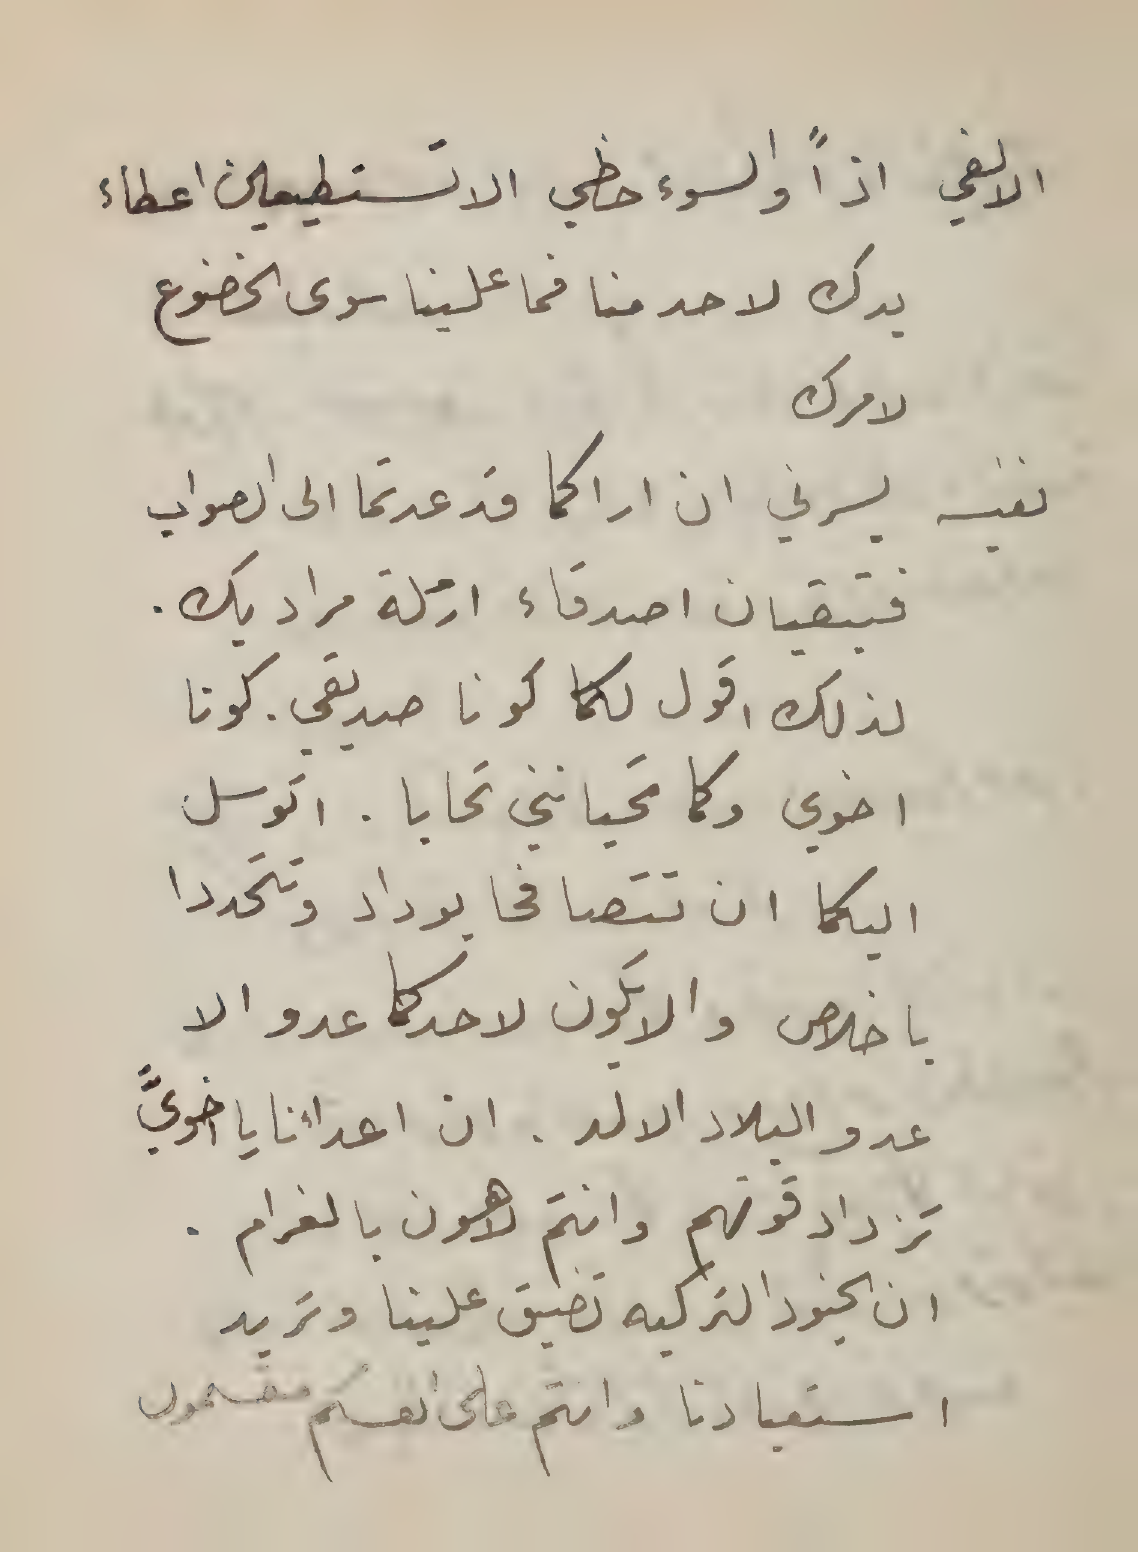 الالفي اذاً والسوء حظي الا تستطيعين اعطاء
يدك لاحد منا فما علينا سوى الخضوع
لامرك
نفيسه يسرني ان اراكما قد عدتما الى الصواب
فتبقيان اصدقاء ارملة مراد بك .
لذلك اقول لكما كونا صديقي . كونا
اخوي وكما تحيانني تحابا . اتوسل
اليكما ان تتصافحا بوداد وتتحددا
باخلاص والا يكون لاحدكما عدو الا
عدو البلاد الالد . ان اعدائنا يا اخويَّ
تزداد قوتهم وانتم لاهون بالغرام .
ان الجنود التركيه تضيق علينا وتريد
استعبادنا وانتم على انفسكم منقسمون